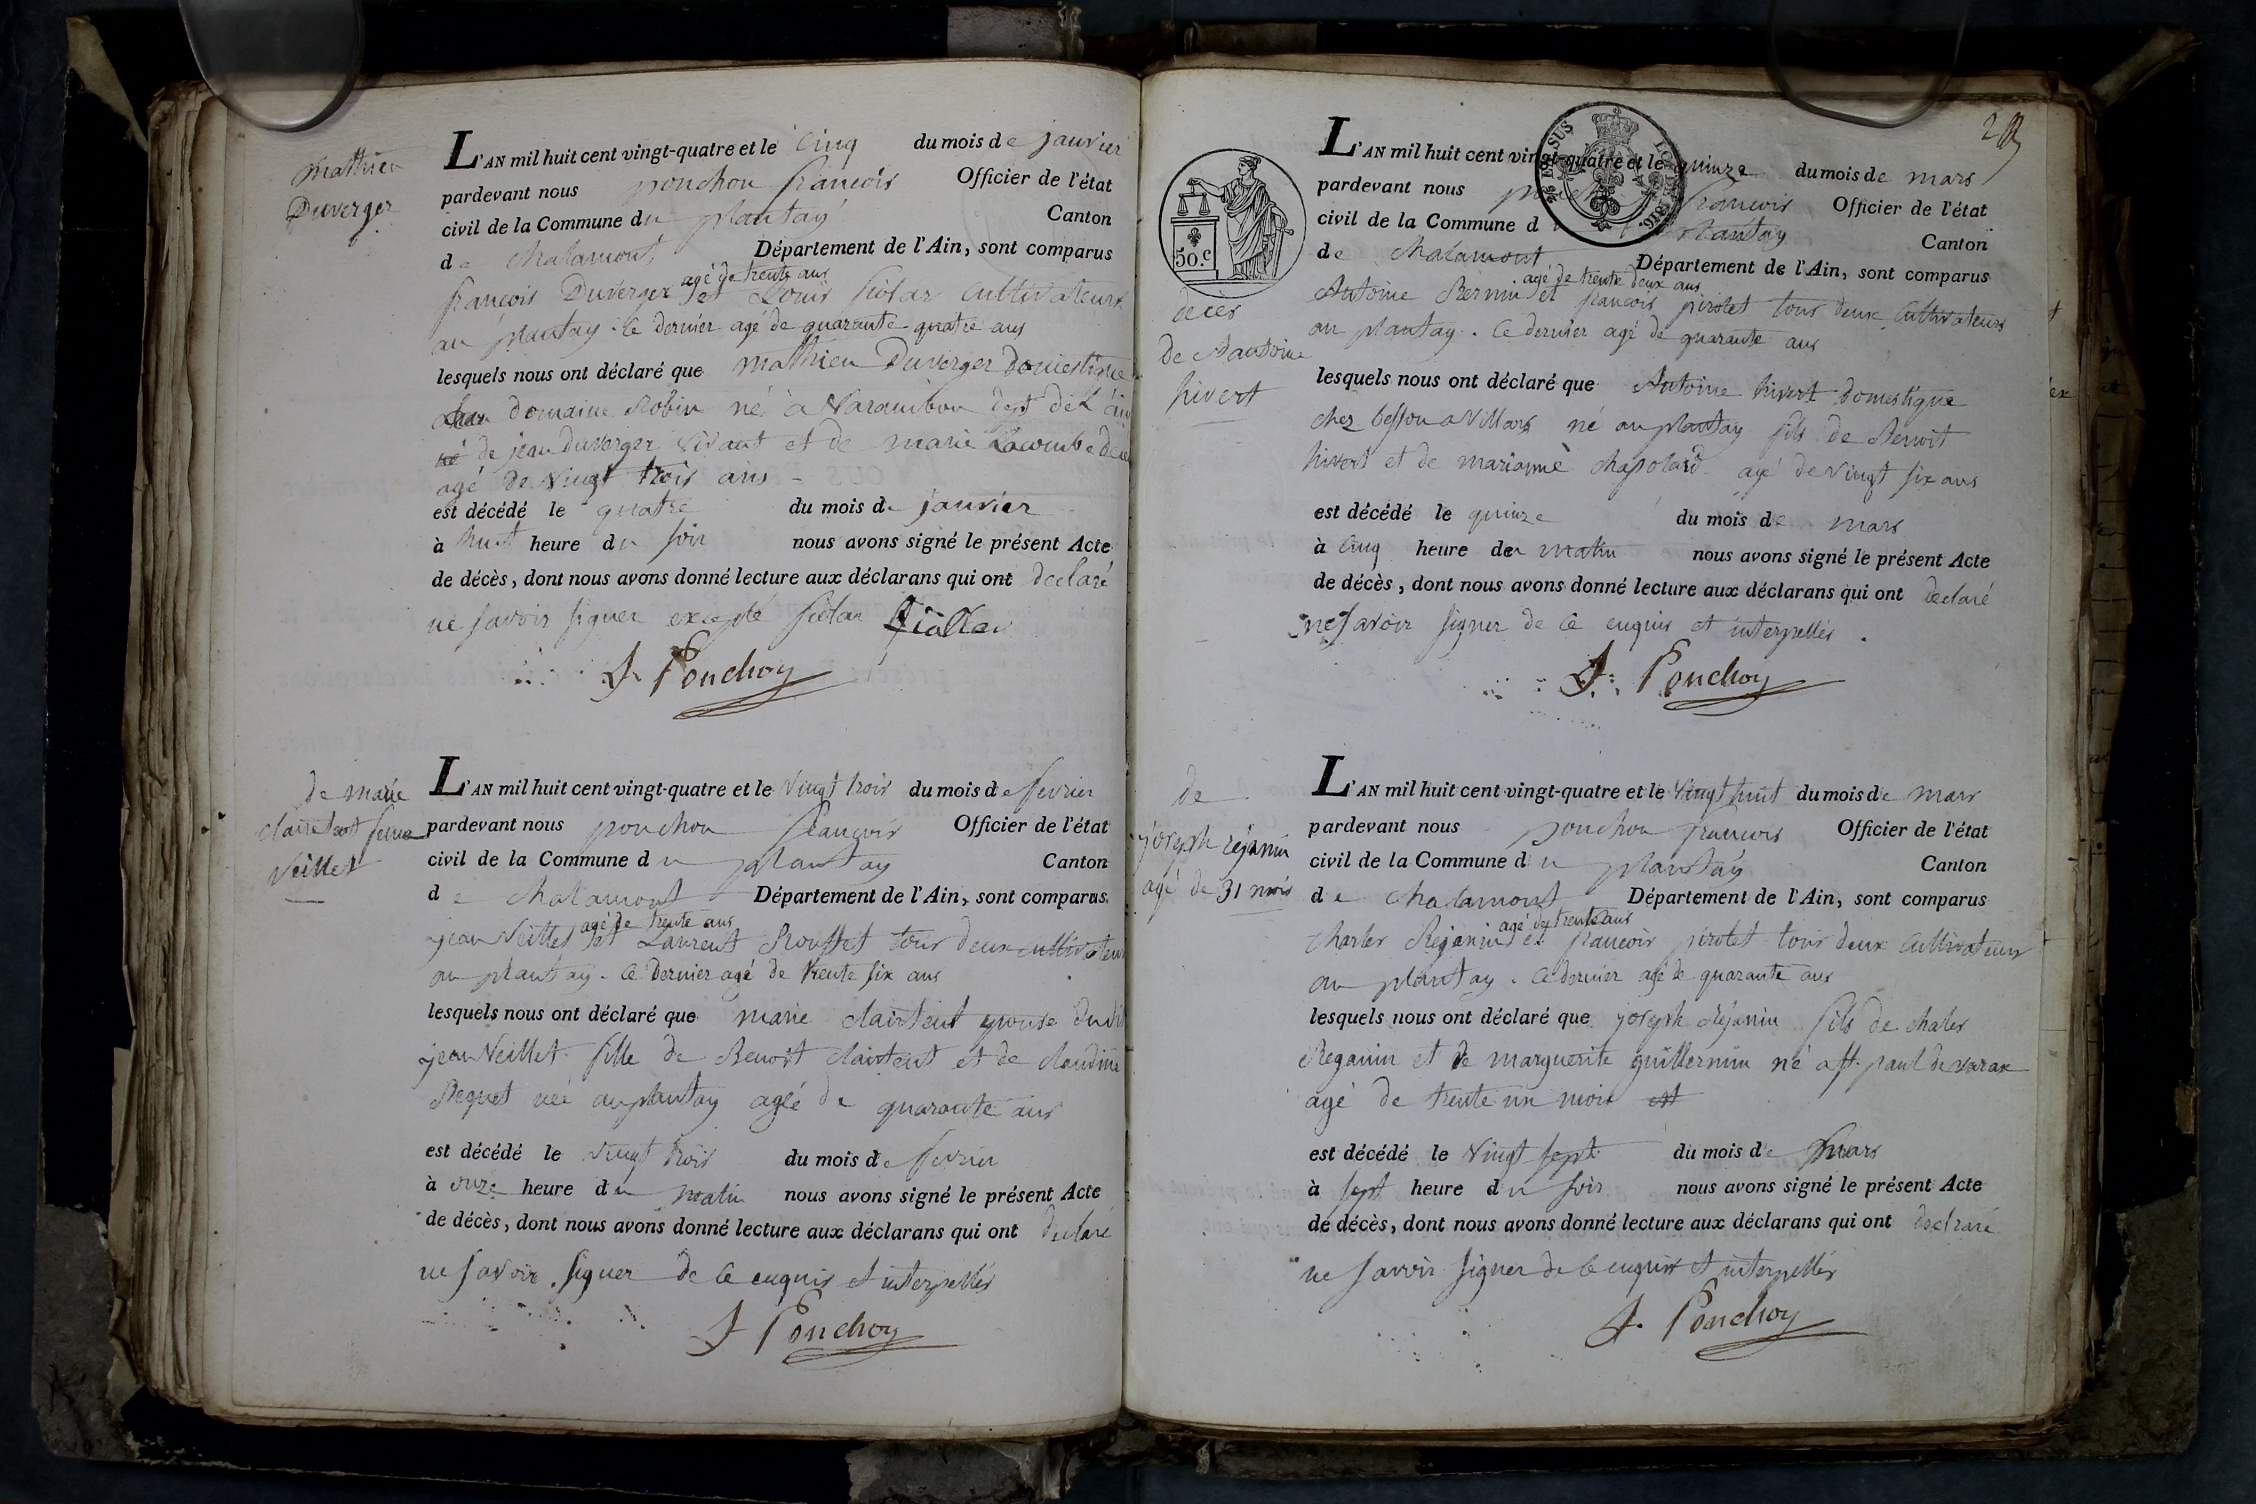 mathieu
Duverger
L'AN mil huit cent vingt-quatre et le cinq du mois de janvier
pardevant nous ponchon francois Officier de l'état
civil de la Commune du plantay Canton
de chalamont Département de l'Ain, sont comparus
agé de trente ans
françois Duverger et Louis fiolar cultivateurs
au plantay. ce dernier agé de quarante quatre ans
lesquels nous ont déclaré que mathieu Duverger domestique
domaine Robin né à Varambon dept de l'ain
né de jean duverger vivant et de marie Lacombe
agé de vingt trois ans
est décédé le quatre du mois de janvier
à huit heure du soir nous avons signé le présent Acte
de décès, dont nous avons donné lecture aux déclarans qui ont declaré
ne savoir signer excepté fiolar
F. Ponchon
de marie
clairtent femme
Veillet
L'AN mil huit cent vingt-quatre et le vingt trois du mois de fevrier
pardevant nous ponchon françois Officier de l'état
civil de la Commune du plantay Canton
de chalamont Département de l'Ain, sont comparus
agé de trente ans
jean Veillet et Laurent Prousset tous deux cultivateurs
au plantay. ce dernier agé de trente six ans
lesquels nous ont déclaré que marie clairtent epouse dudit
jean Veillet fille de Benoit clairtent et de claudine
Pequet née au plantay agée de quarante ans
est décédé le vingt trois du mois de fevrier
à onze heure du matin nous avons signé le présent Acte
de décès, dont nous avons donné lecture aux déclarans qui ont declaré
ne savoir signer de ce enquis et interpellés
F Ponchon
50.c
décès
de Antoine
hivert
L'AN mil huit cent vingt-quatre et le quinze du mois de mars
pardevant nous francois Officier de l'état
civil de la Commune d plantay Canton
de chalamont Département de l'Ain, sont comparus
agé de trente deux ans
Antoine Bernin et francois pirotet tous deux cultivateurs
au plantay. ce dernier agé de quarante ans
lesquels nous ont déclaré que Antoine hivert domestique
chez besson a Villars né au plantay fils de Benoit
hivert et de marianne chapolard agé de vingt six ans
est décédé le quinze du mois de mars
à cinq heure du matin nous avons signé le présent Acte
de décès, dont nous avons donné lecture aux déclarans qui ont declaré
ne savoir signer de ce enquis et interpellés.
F. Ponchon
de
joseph rejanin
agé de 31 mois
L'AN mil huit cent vingt-quatre et le vingt huit du mois de mars
pardevant nous ponchon francois Officier de l'état
civil de la Commune du plantay Canton
de chalamont Département de l'Ain, sont comparus
agé de trente ans
charles Rejanin et francois pirotet tous deux cultivateurs
au plantay. ce dernier agé de quarante ans
lesquels nous ont déclaré que joseph Rejanin fils de charles
Reganin et de marguerite guillermin né a st. paul de varax
agé de trente un mois est
est décédé le vingt sept du mois de mars
à sept heure du soir nous avons signé le présent Acte
de décès, dont nous avons donné lecture aux déclarans qui ont declaré
ne savoir signer de ce enquis et interpellés
F. Ponchon